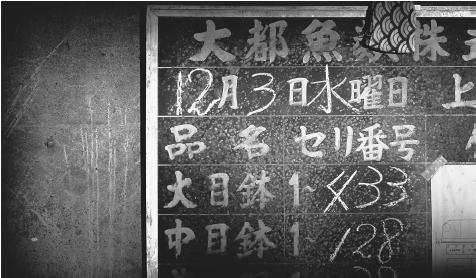 大都魚類株式
12月3日水曜日 上
品名 セリ番号
大目鉢 1~
中目鉢 1~128